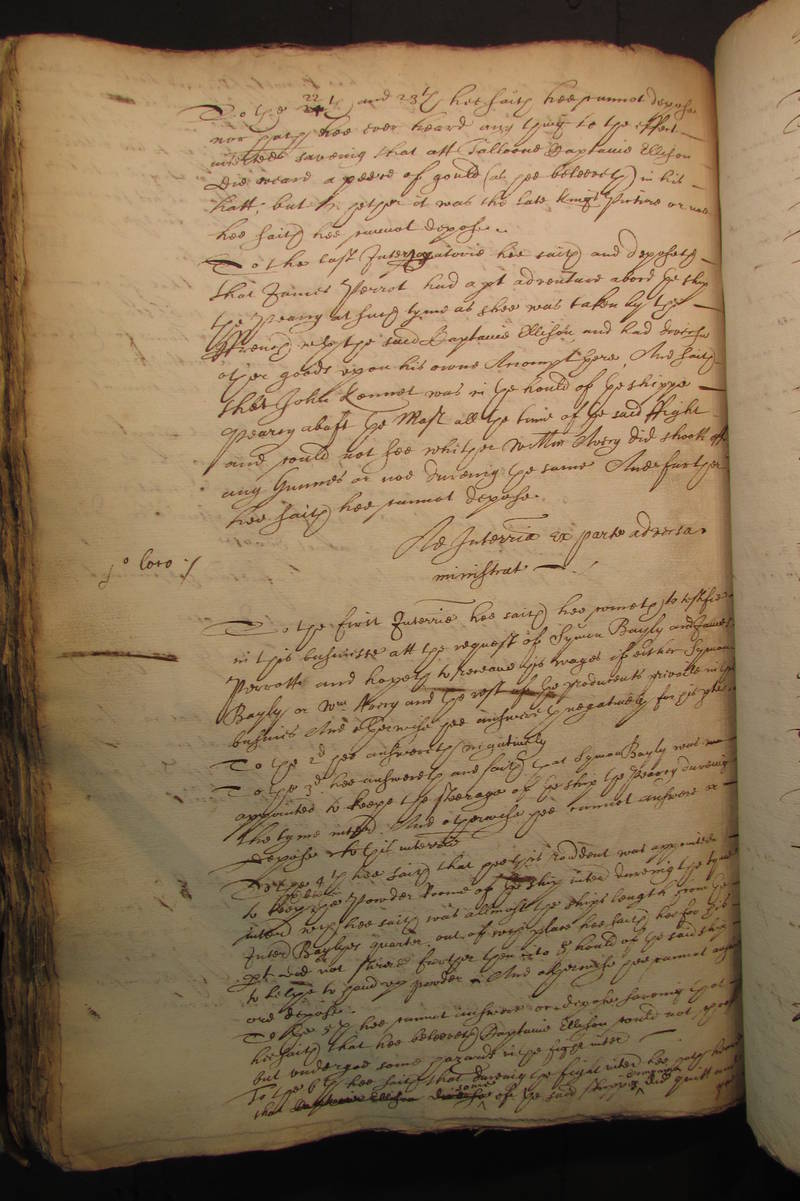 To the 22th and 23th hee saith hee cannot depose
nor hath hee ever heard any thing to the effect
savering that att Talloone Captaine Ellison
did weare a peece of gould (as hee beleeveth) in his
hatt, but whether it was the late Kings Picture or noe
hee saith hee cannot depose.
To the last Interrogatorie hee saith and deposeth
that James Perrot had a pt adventure abord the ship
the Pearcy at such tyme as shee was taken by the
ffrench the said Captaine Ellison, and had diverse
other goods upon his owne Accompt there, And saith
that John Kennet was in the hould of the shippe
Pearcy abaft the Mast all the time of the said ffight
and could not see whither William Avery did shoott off
any Gunnes or noe dureing the same And further
hee saith hee cannot depose.
Ad Interria ex parte adversa
ministrat
po loco
To the first Interrie hee saith hee cometh to testifie
in this businisse att the request of Symon Bayly and James
Perrotte and hopeth to receave his wages if either Symon
Bayly or Wm Avery and the rest of the producents prevaile in this
busines And otherwise hee answereth negatively for his pte
To the 2d hee answereth negatively
To the 3d hee answereth and saith that Symon Bayly was
appointed to keepe the steerage of the ship the Pearcy dureing
the tyme interd. And otherwise hee cannot answere or
depose to this interrie
To the 4th hee saith that hee this rendent was appointed
to keep the Powder Roome of the ship inter dureing the tyme
interd wch hee saith was allmost the ships length from the
Inter Baylyes quarter. out of wch place hee saith hee for his
pt did not stirre further then into the hould of the said ship
to helpe to hand up powder And otherwise hee cannot answ
ore depose.
To the 5th hee cannot answere or depose saveing that
hee saith that hee beleeveth Captaine Ellison could not
but undergoe some hazard in the fight inter
To the 6th hee saith that dureing the fight inter hee
that Captaine Ellison some of the said shipps company did quitt